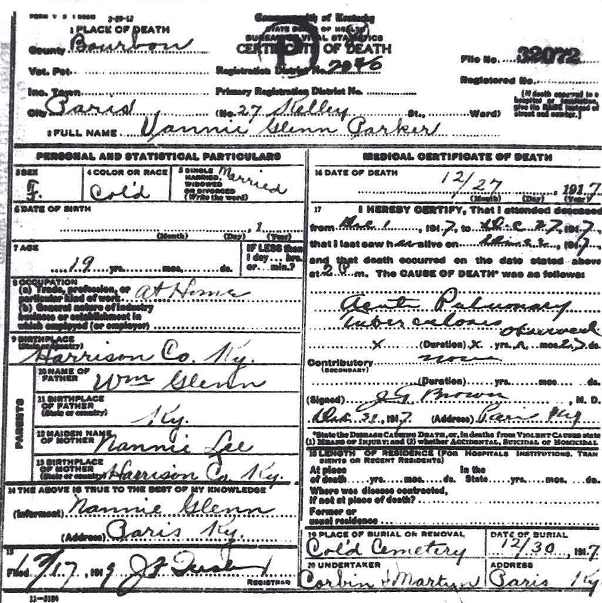 FORM V S 1
Commonwealth of Kentucky
STATE BOARD OF HEALTH
BUREAU OF VITAL STATISTICS
CERTIFICATE OF DEATH
1 PLACE OF DEATH
County Bourbon
File No. 32072
Vot. Pct
Registration District No. 7046
Registered No.
Inc. Town
Primary Registration District No.
City Paris (No. 27 Kelley St., Ward)
(If death occurred in a hospital or institution, give its NAME instead of street and number.)
2 FULL NAME Vannie Glenn Parker
PERSONAL AND STATISTICAL PARTICULARS
3 SEX F
4 COLOR OR RACE Col'd
5 SINGLE MARRIED, WIDOWED OR DIVORCED (Write the word) Married
6 DATE OF BIRTH
, 1
(Month) (Day) (Year)
7 AGE
19 yrs. mos. ds.
IF LESS than 1 day... hrs. or... min.?
8 OCCUPATION
(a) Trade, profession, or particular kind of work At Home
(b) General nature of industry business or establishment in which employed (or employer)
9 BIRTHPLACE
(State or country)
Harrison Co. Ky.
PARENTS
10 NAME OF FATHER Wm Glenn
11 BIRTHPLACE OF FATHER (State or country) Ky.
12 MAIDEN NAME OF MOTHER Nannie Lee
13 BIRTHPLACE OF MOTHER (State or country) Harrison Co Ky.
14 THE ABOVE IS TRUE TO THE BEST OF MY KNOWLEDGE
(Informant) Nannie Glenn
(Address) Paris Ky.
15
Filed 191
REGISTRAR
11-3184
MEDICAL CERTIFICATE OF DEATH
16 DATE OF DEATH
12/27, 1917
(Month) (Day) (Year)
17 I HEREBY CERTIFY, That I attended deceased
from Dec 1, 1917, to Dec 27, 1917,
that I last saw her alive on 1917,
and that death occurred on the date stated above
at 2 P m. The CAUSE OF DEATH* was as follows:
Acute Pulmonary
tuberculosis
x (Duration) x yrs. mos. ds.
Contributory none
(SECONDARY)
(Duration) yrs. mos. ds.
(Signed) J G Brown, M. D.
1917 (Address) Paris Ky
*State the DISEASE CAUSING DEATH, or, in deaths from VIOLENT CAUSES state (1) MEANS OF INJURY; and (2) whether ACCIDENTAL, SUICIDAL or HOMICIDAL.
18 LENGTH OF RESIDENCE (FOR HOSPITALS INSTITUTIONS, TRANSIENTS OR RECENT RESIDENTS)
At place of death yrs. mos. ds. In the State yrs. mos. ds.
Where was disease contracted, if not at place of death?
Former or usual residence
19 PLACE OF BURIAL OR REMOVAL Col'd Cemetery
DATE OF BURIAL 12/30, 1917
20 UNDERTAKER Corbin & Martin
ADDRESS Paris Ky